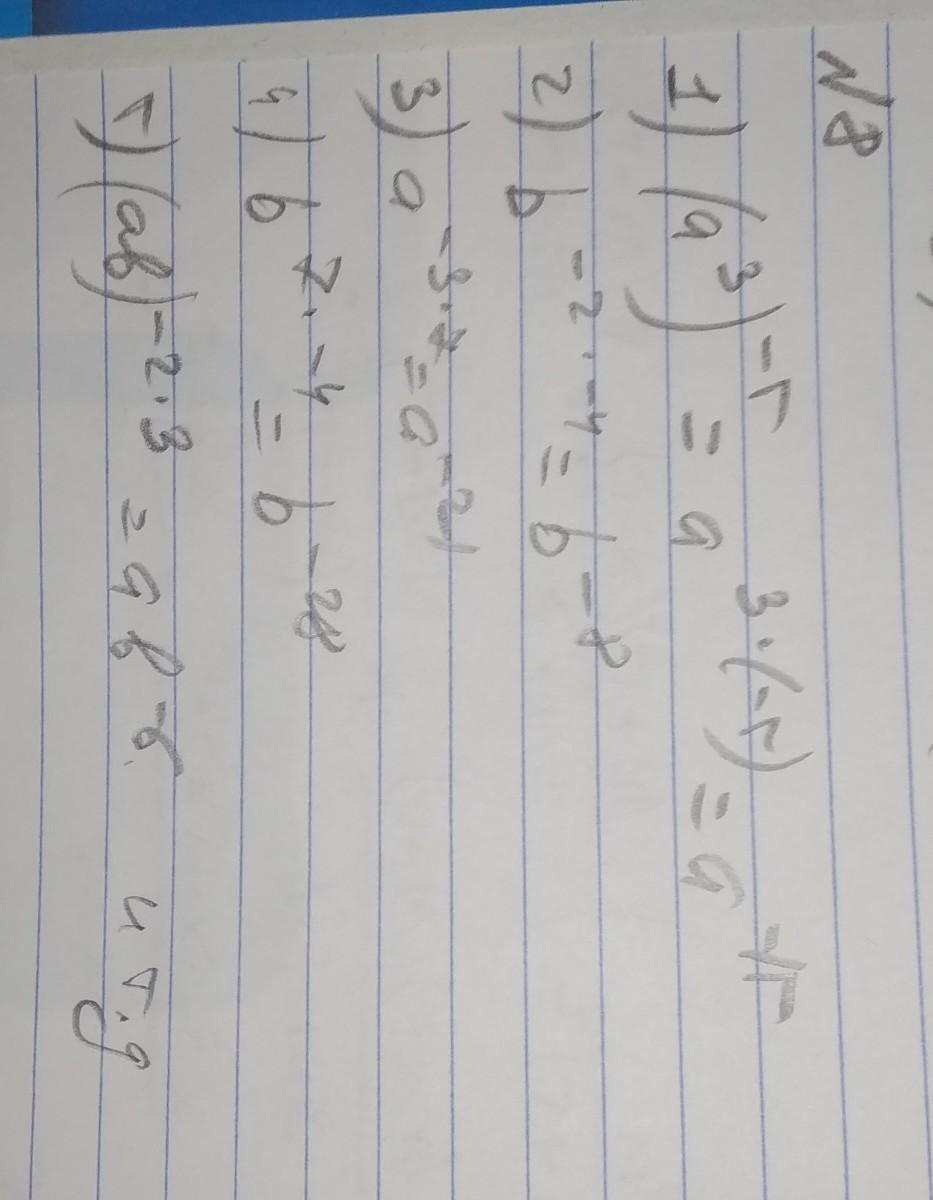 N8
1) (a³)⁻⁵ = a³·⁽⁻⁵⁾ = a⁻¹⁵
2) b⁻²·⁻⁴ = b⁻⁸
3) a⁻³·⁷ = a⁻²¹
4) b⁷·⁻⁴ = b⁻²⁸
5) (ab)⁻²·³ = ab⁻⁶ и т.д